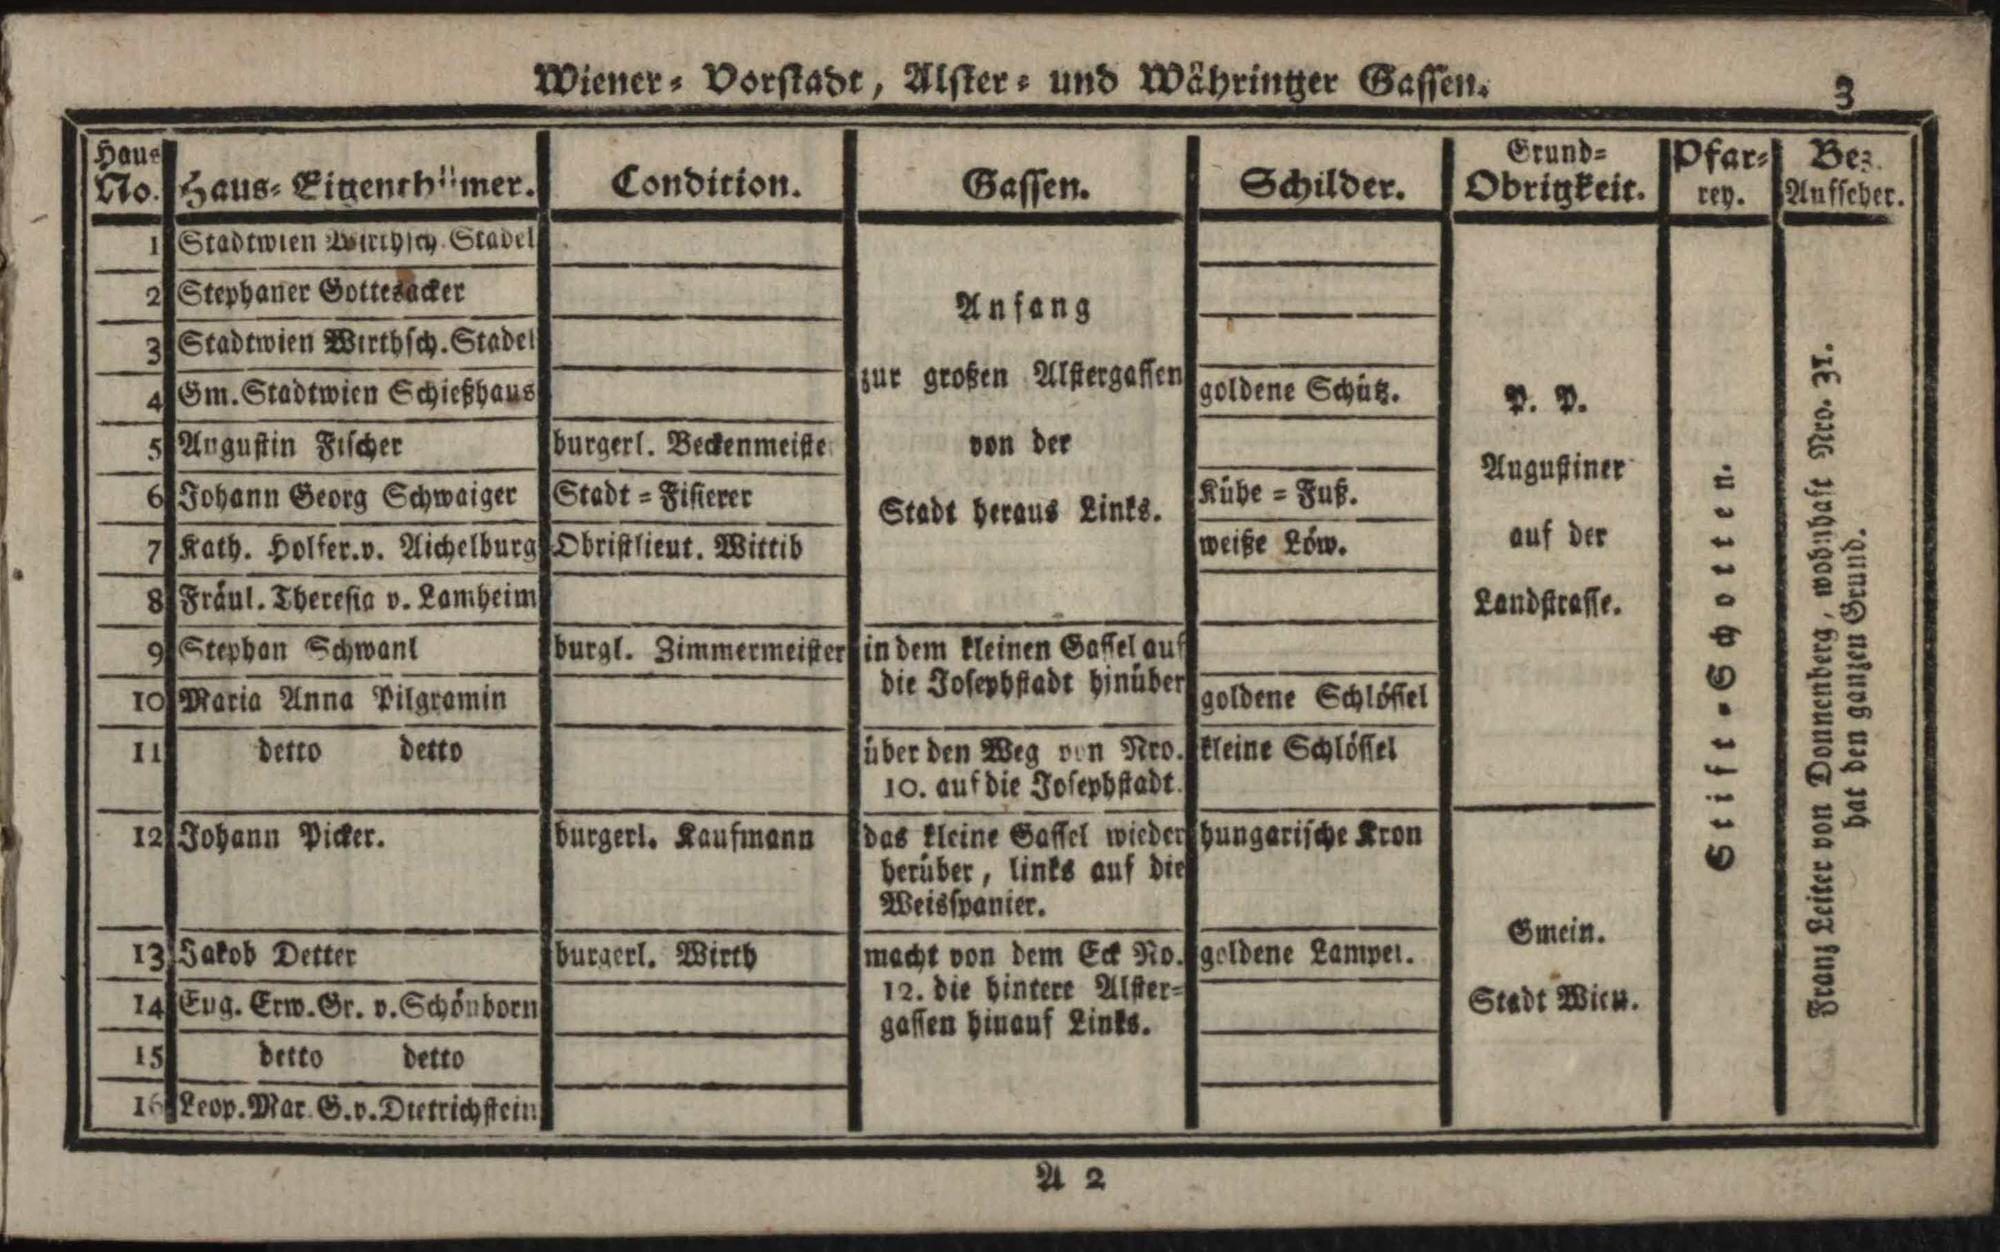 Wiener- Vorstadt, Alster- und Währinger Gassen. 3
Haus No. Haus-Eigenthümer. Condition. Gassen. Schilder. Grund-Obrigkeit. Pfar-rey. Bez. Aufseher.
1 Stadtwien Wirthsch. Stadel
2 Stephaner Gottesacker
3 Stadtwien Wirthsch. Stadel
4 Gm. Stadtwien Schießhaus goldene Schütz.
5 Augustin Fischer burgerl. Beckenmeiste
6 Johann Georg Schwaiger Stadt-Fisierer Kühe-Fuß.
7 Kath. Holfer. v. Aichelburg Obristlieut. Wittib weiße Löw.
8 Fräul. Theresia v. Lamheim
Anfang
zur großen Alstergassen
von der
Stadt heraus Links.
9 Stephan Schwanl burgl. Zimmermeister in dem kleinen Gassel auf
die Josephstadt hinüber
10 Maria Anna Pilgramin goldene Schlössel
11 detto detto über den Weg von Nro. kleine Schlössel
10. auf die Josephstadt.
12 Johann Picker. burgerl. Kaufmann das kleine Gassel wieder hungarische Kron
herüber, links auf die
Weisspanier.
13 Jakob Detter burgerl. Wirth macht von dem Eck No. goldene Lampel.
12. die hintere Alster-
gassen hinauf Links.
14 Eug. Erw. Gr. v. Schönborn
15 detto detto
16 Leop. Mar. G. v. Dietrichstein
P. P.
Augustiner
auf der
Landstrasse.
Gmein.
Stadt Wien.
Stift-Schotten.
Franz Leiter von Donnenberg, wohnhaft Nro. 31.
hat den ganzen Grund.
A 2